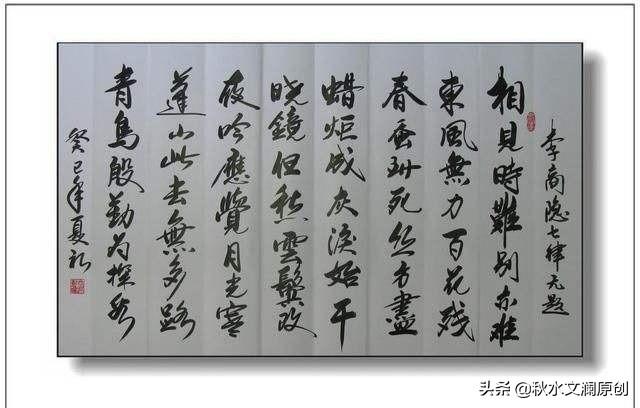 李商隐七律无题
相見時難别亦难
東風無力百花残
春蚕到死丝方盡
蜡炬成灰淚始干
晓鏡但愁雲鬓改
夜吟應覺月光寒
蓬山此去無多路
青鳥殷勤为探看
癸巳年夏
头条 @秋水文澜原创